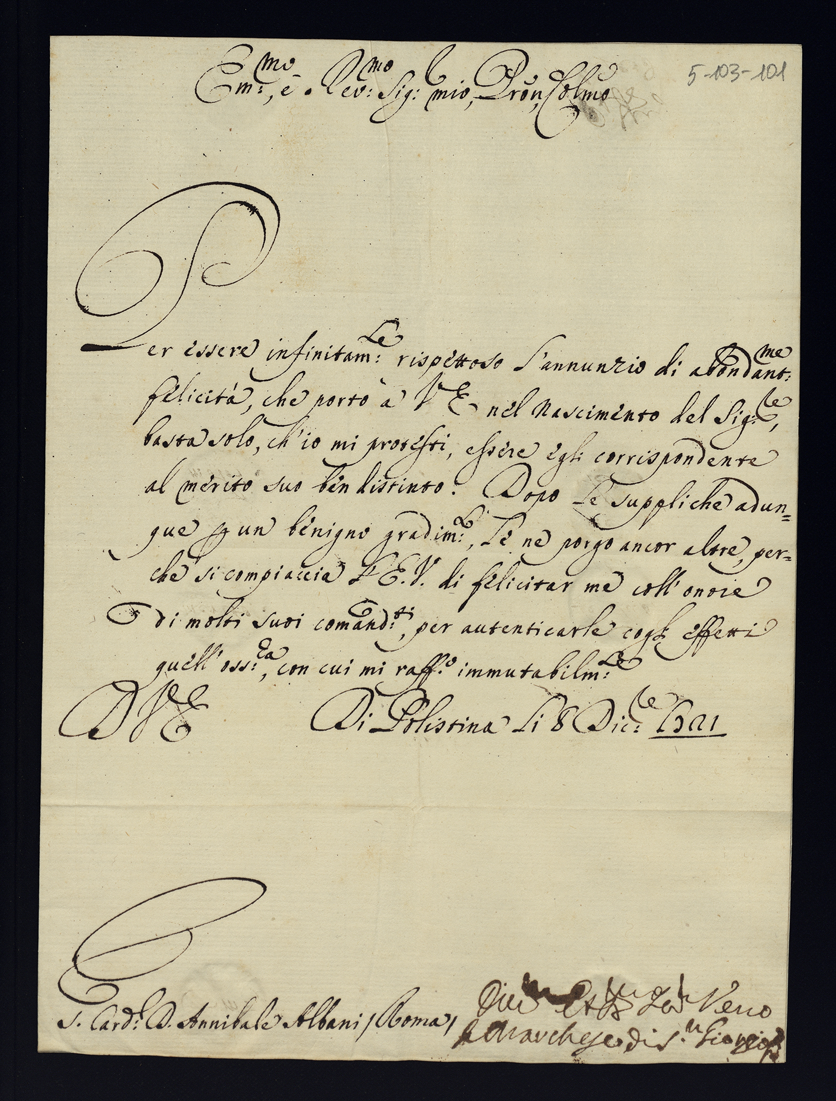 5-103-101
Em:mo, e Rev:mo Sig: mio, Pron, Colmo
Per essere infinitam:te rispettoso l'annunzio di abondant:me
felicità, che porto à V E nel Nascimento del Sig:re,
basta solo, ch'io mi protesti, essere egli corrispondente
al merito suo ben distinto. Dopo le suppliche adun=
que p un benigno gradim:to, Le ne porgo ancor altre, per=
che si compiaccia l'E.V. di felicitar me coll'onore
di molti suoi comand:ti, per autenticarle cogli effetti
quell'oss:za, con cui mi raff:o immutabilm:te
D V E Di Polistina li 8 Dic:re
S. Card:l D. Annibale Albani / Roma /
Vero
Marchese di S.n Giorgio